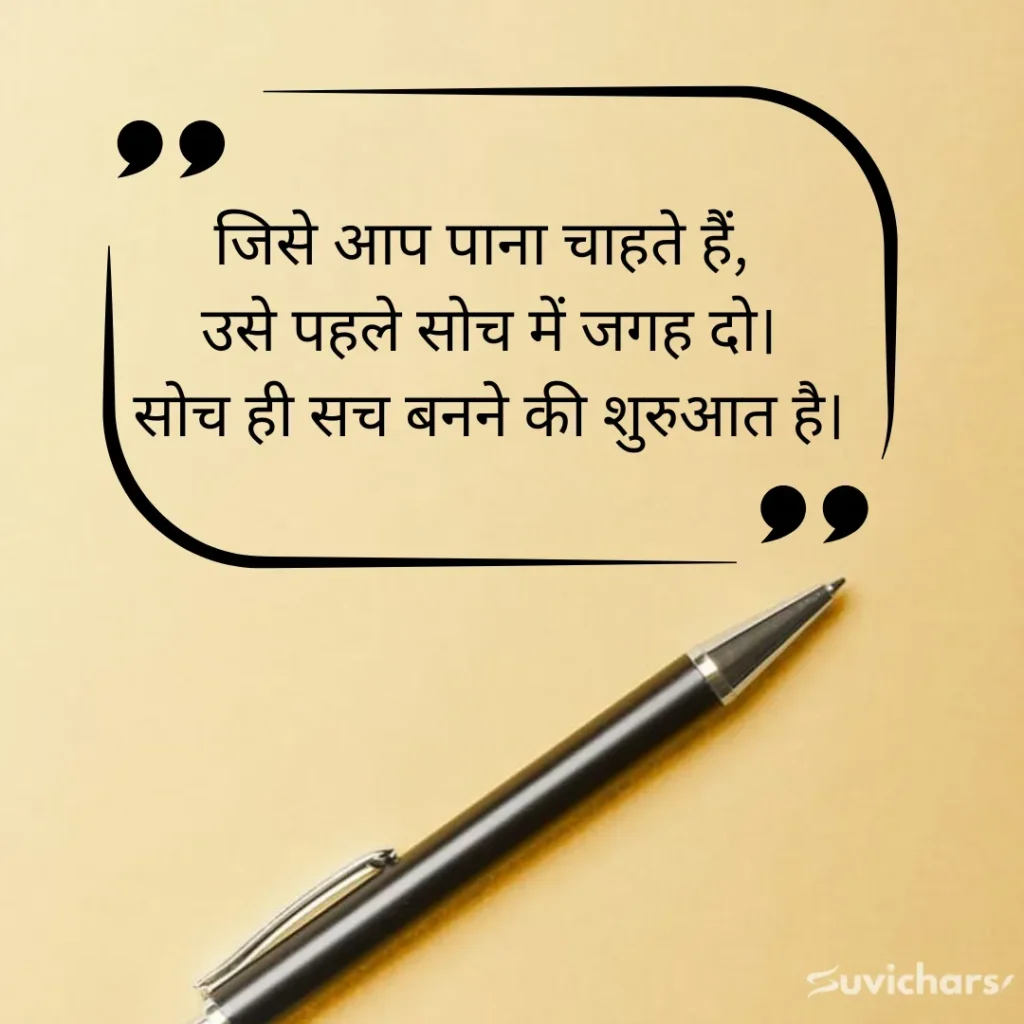 जिसे आप पाना चाहते हैं,
उसे पहले सोच में जगह दो।
सोच ही सच बनने की शुरुआत है।
Suvichars